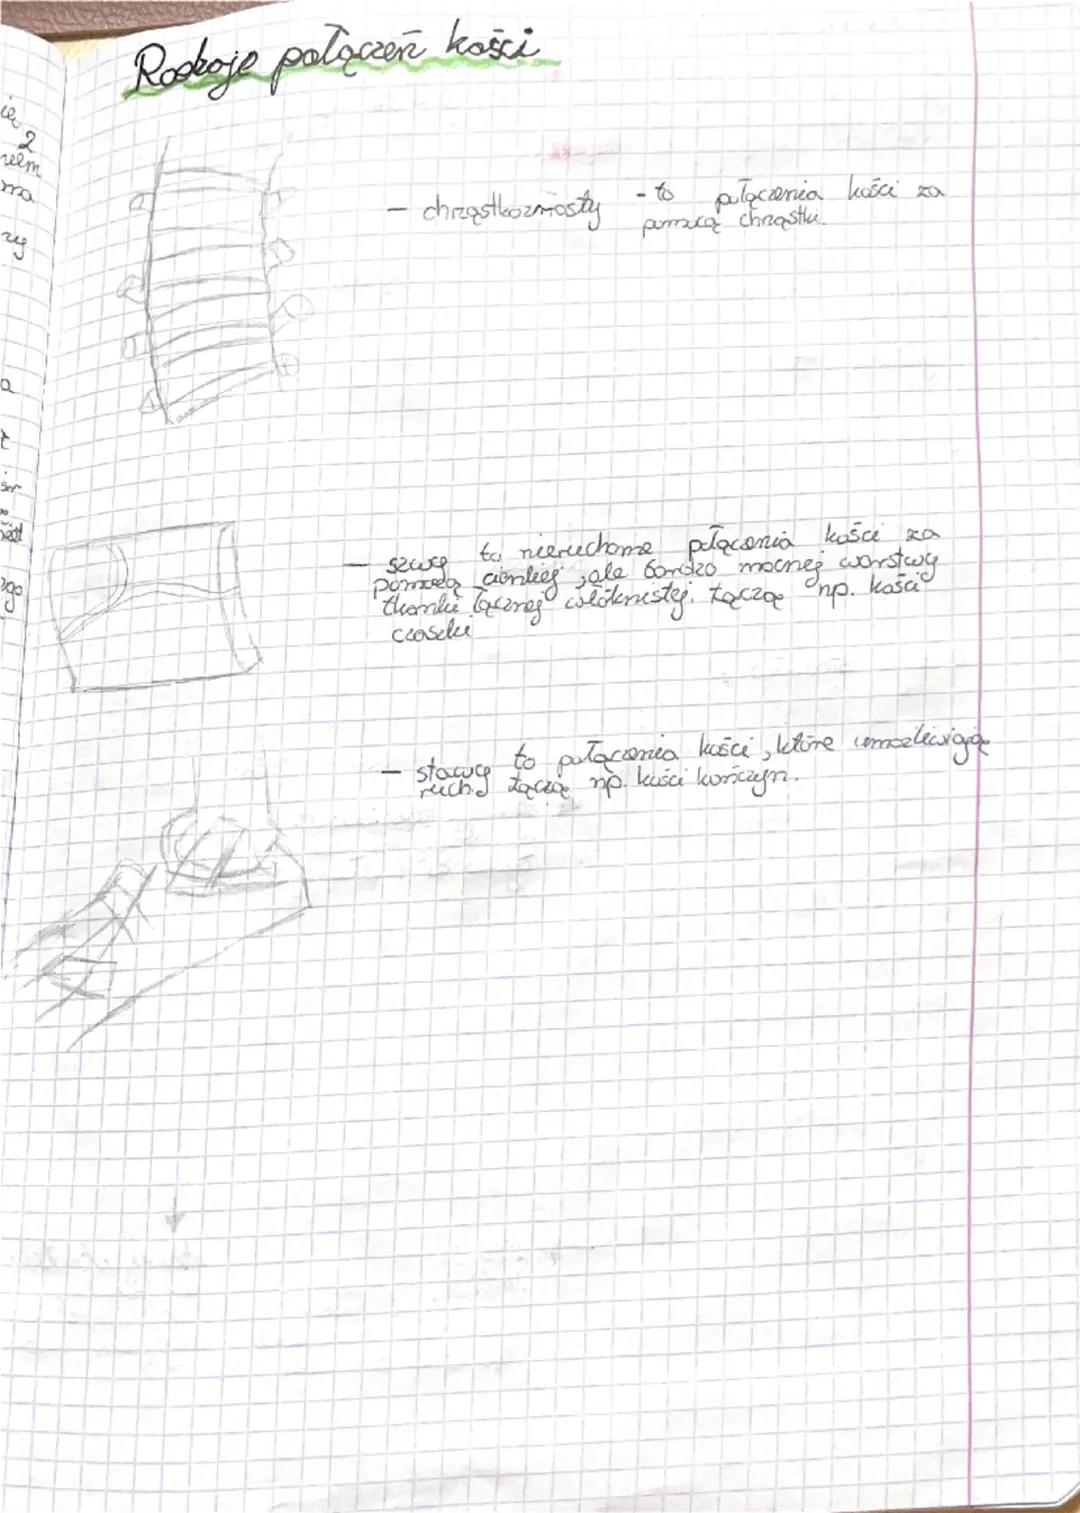 Rodzaje połączeń kości
- chrząstkozrosty - to połączenia kości za
pomocą chrząstki.
- szwy to nieruchome połączenia kości za
pomocą cienkiej, ale bardzo mocnej warstwy
tkanki łącznej włóknistej. Łączą np. kości
czaszki
- stawy to połączenia kości, które umożliwiają
ruch. Łączą np. kości kończyn.
2
zy
a